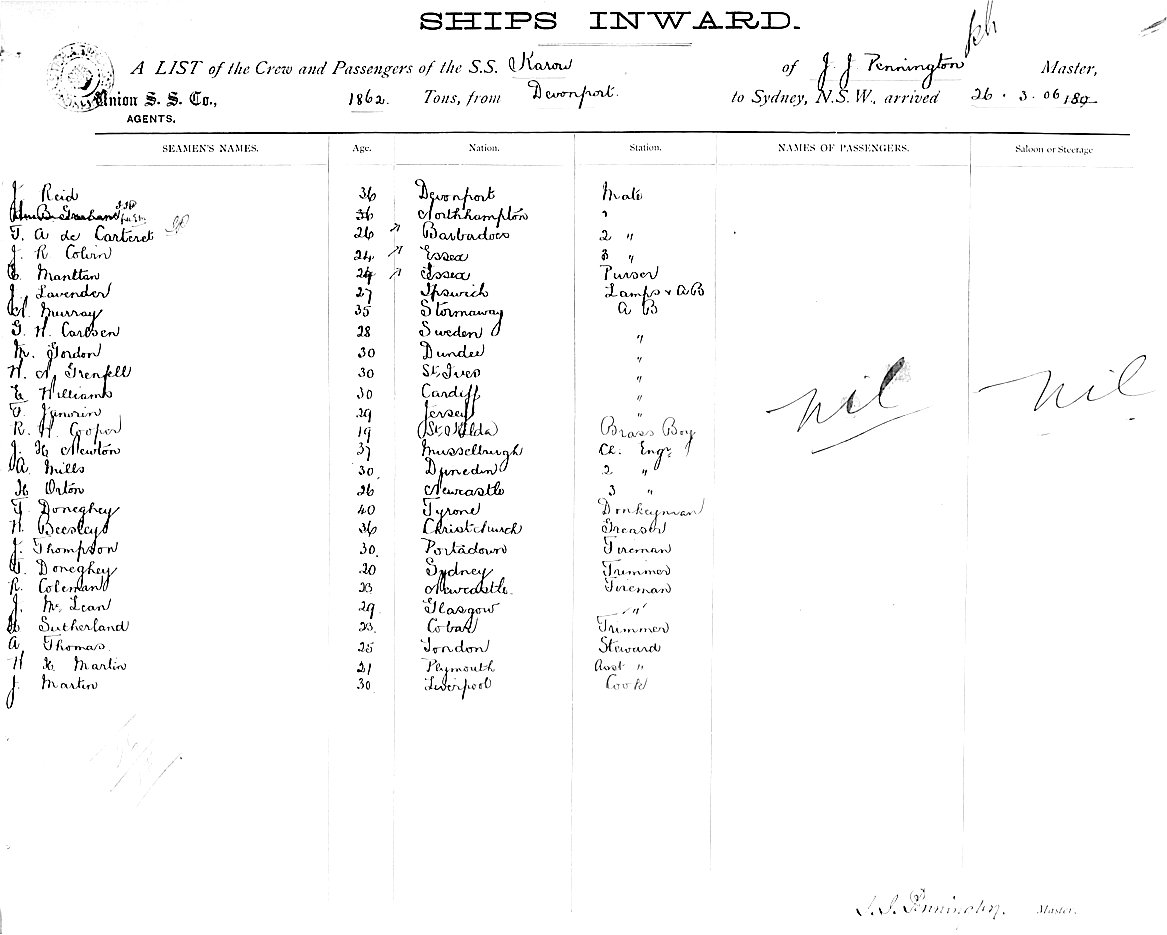 SHIPS INWARD.
A LIST of the Crew and Passengers of the S.S. Karori of J. J. Pennington Master,
Union S. S. Co., 1862. Tons, from Devonport. to Sydney, N.S.W., arrived 26 . 3 . 06 189
AGENTS.
SEAMEN'S NAMES. Age. Nation. Station. NAMES OF PASSENGERS. Saloon or Steerage
J. Reid 36 Devonport Mate
36 Northhampton "
F. A de Carteret 26 Barbadoes 2 "
J. R Colvin 24 Essex 3 "
Manttan 24 Essex Purser
J. Lavender 27 Ipswich Lamps & AB
Murray 35 Stornaway A B
G. H. Carlsen 28 Sweden "
M. Gordon 30 Dundee "
H. A. Grenfell 30 St. Ives "
E Williams 30 Cardiff "
29 Jersey "
R. H. Cooper 19 St. Kilda Brass Boy
J. H Newton 37 Musselburgh Ch. Engr
A. Mills 30 Dunedin 2 "
H Orton 26 Newcastle 3 "
F Doneghey 40 Tyrone Donkeyman
H. Beesley 36 Christchurch Greaser
J. Thompson 30. Portadown Fireman
F. Doneghey 20 Sydney Trimmer
R. Coleman 23 Newcastle. Fireman
J. Mc Lean 29 Glasgow "
Sutherland 23. Cobar Trimmer
A Thomas. 25 London Steward
H H Martin 21 Plymouth Asst "
J. Martin 30. Liverpool Cook
Nil Nil
J. J. Pennington. Master.